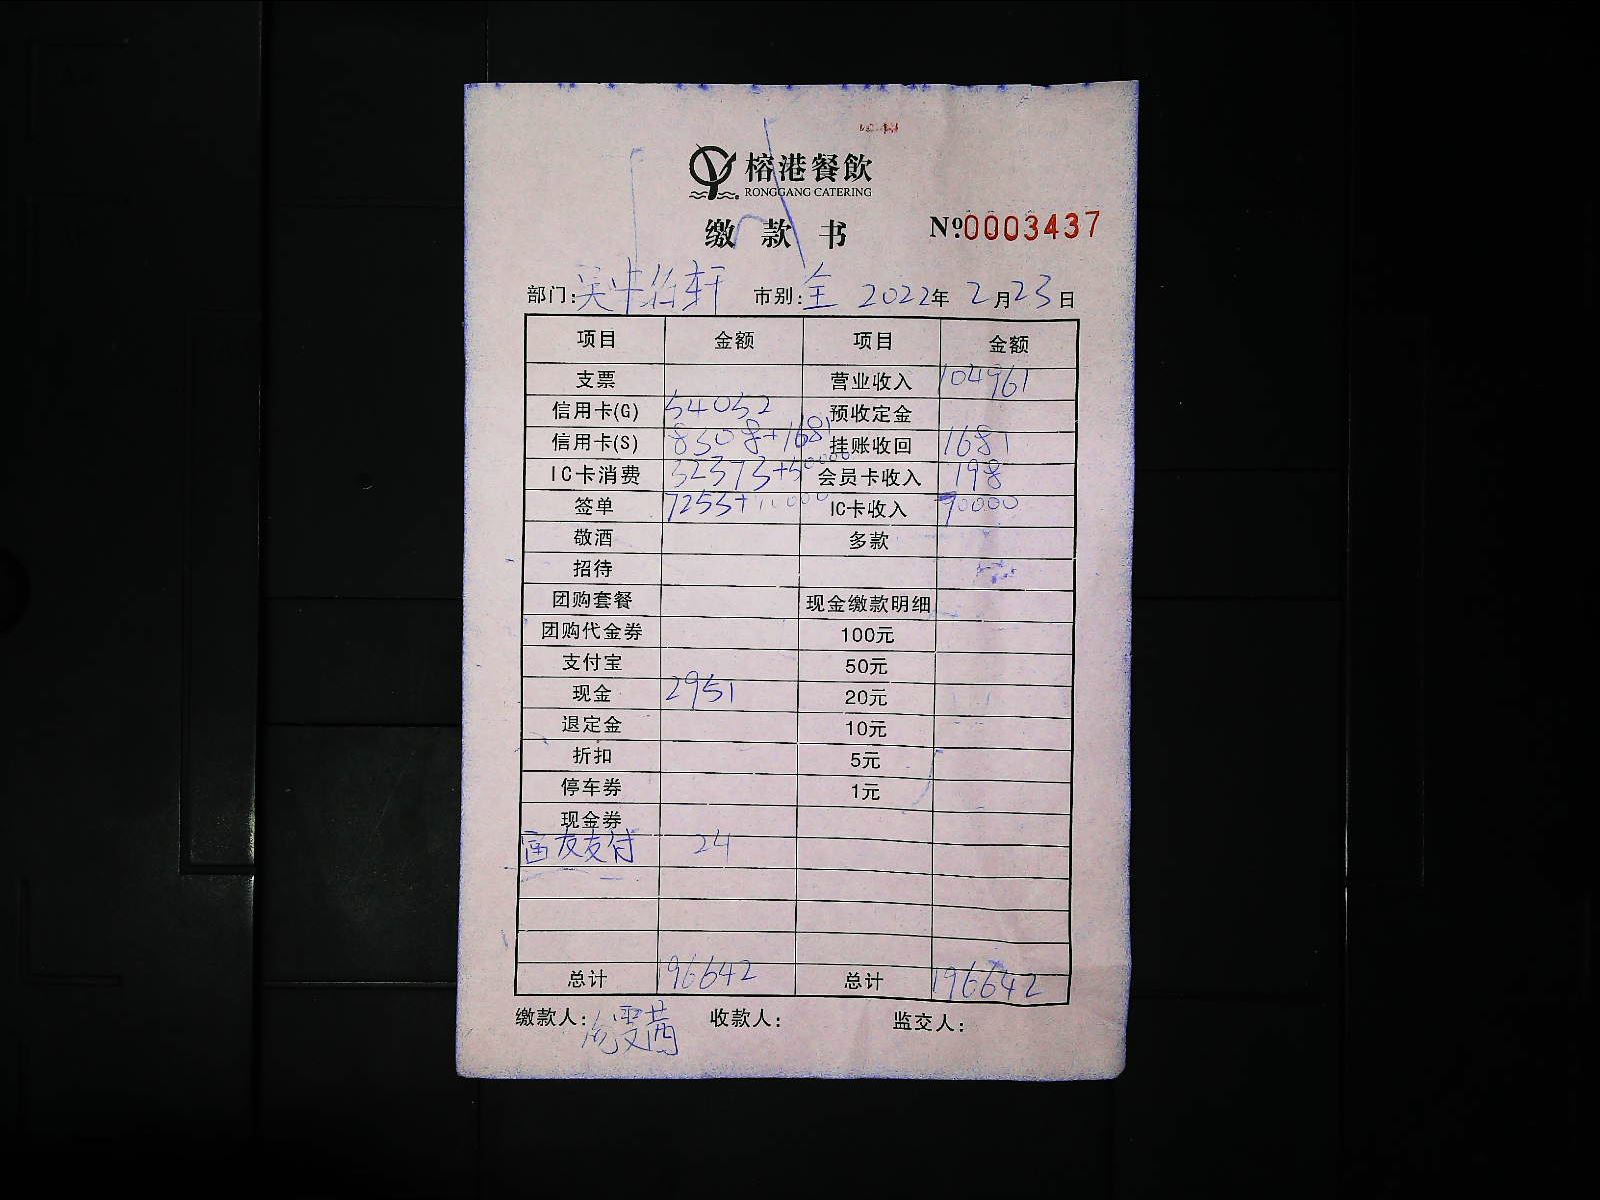 榕港餐飲
RONGGANG CATERING
缴款书
№0003437
部门: 轩 市别: 全 2022年 2月23日
项目 金额 项目 金额
支票 营业收入 104961
信用卡(G) 54052 预收定金
信用卡(S) 8308+1681 挂账收回 1681
IC卡消费 32373+50000 会员卡收入 198
签单 7253+40000 IC卡收入 90000
敬酒 多款
招待
团购套餐 现金缴款明细
团购代金券 100元
支付宝 50元
现金 2951 20元
退定金 10元
折扣 5元
停车券 1元
现金券
富友支付 24
总计 196642 总计 196642
缴款人: 收款人: 监交人: